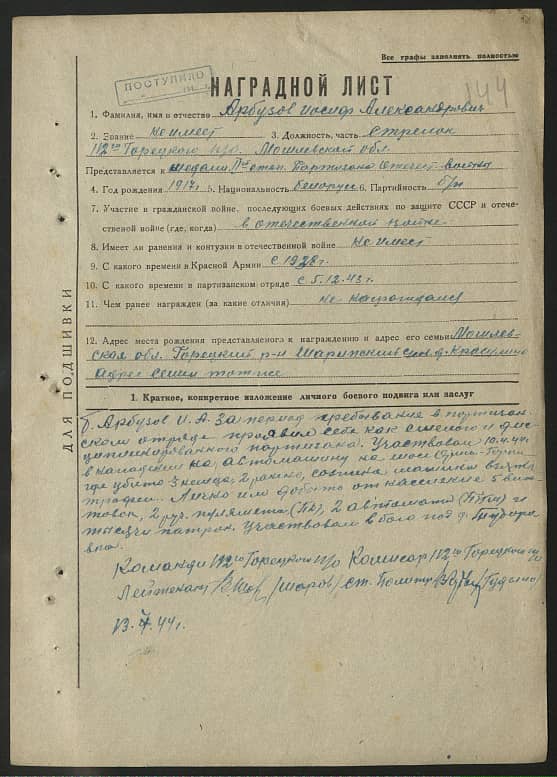 Все графы заполнять полностью
ПОСТУПИЛО
144
НАГРАДНОЙ ЛИСТ
1. Фамилия, имя и отчество Арбузов Иосиф Александрович
2. Звание не имеет 3. Должность, часть Стрелок
112го Горецкого п/о Могилевской обл.
Представляется к медали IIой степ. Партизана Отечест. войны
4. Год рождения 1917г. 5. Национальность Белорус 6. Партийность б/п
7. Участие в гражданской войне, последующих боевых действиях по защите СССР и отече-
ственной войне (где, когда) в отечественной войне
8. Имеет ли ранения и контузии в отечественной войне не имеет
9. С какого времени в Красной Армии с 1938г.
10. С какого времени в партизанском отряде с 5.12.43г.
11. Чем ранее награжден (за какие отличия) не награждался
12. Адрес места рождения представляемого к награждению и адрес его семьи Могилев-
ская обл. Горецкий р-н с/сов. д.
адрес семьи тотже
ДЛЯ ПОДШИВКИ
1. Краткое, конкретное изложение личного боевого подвига или заслуг
т. Арбузов И.А. За период пребывание в партизан.
ском отряде проявил себя как смелого и дис-
циплинированного партизана. Участвовал 10.4.44г.
в нападении на автомашину на шосе Орша-Горки
где убито 3 немца, 2 ранено, сожжена машина взяты
трофеи. Лично им добыто от население 5 винт
товок, 2 руч. пулямета, 2 автомата (ППШ) и
тысячи патрон. Участвовал в бою под д.
Командир 112го Горецкого п/о Комисар 112го Горецкого п/о
Лейтенант /Шаров/ ст. Политрук
13.7.44г.